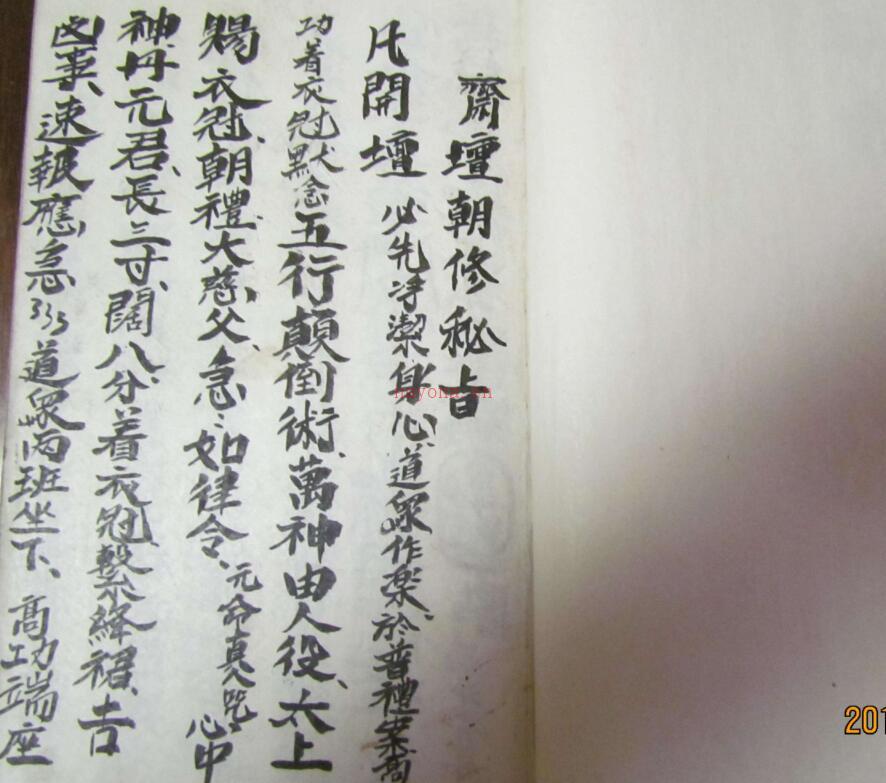 齋壇朝修秘旨
凡開壇必先净潔身心道眾作樂於普禮畢高
功着衣冠默念五行顛倒術萬神由人役太上
賜衣冠朝禮大慈父急〻如律令元命真人咒心中
神丹元君長三寸闊八分着衣冠繫絳裙吉
凶事速報應急道眾两班坐下高功端座
201